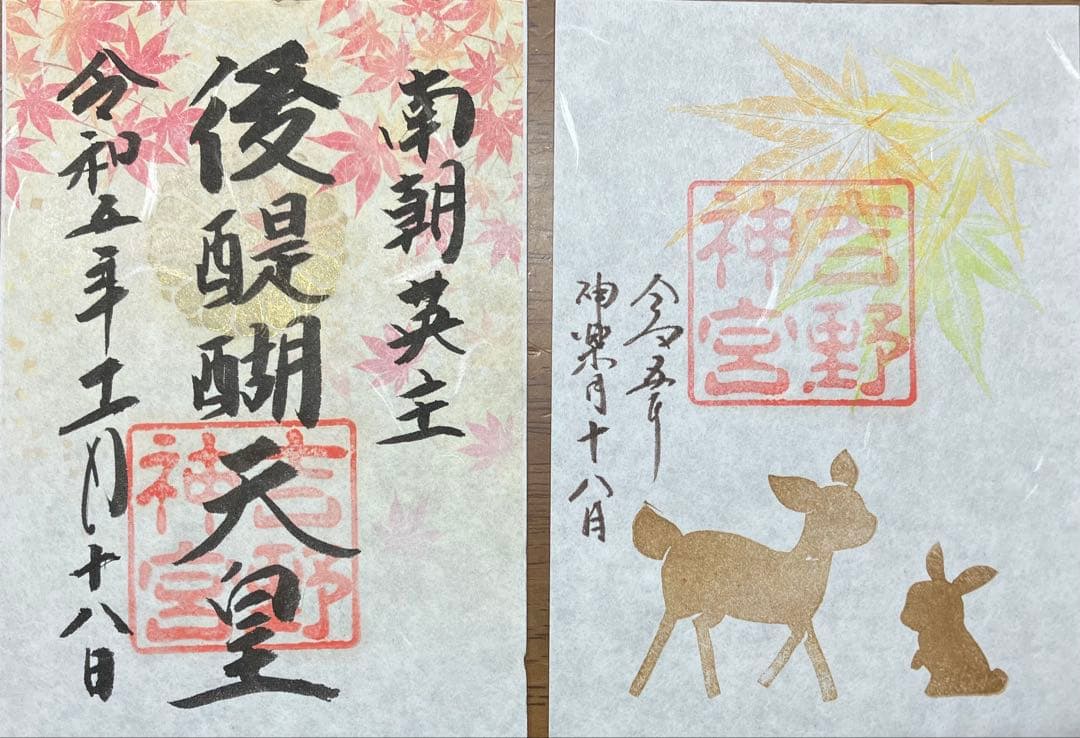 南朝英主
後醍醐天皇
令和五年工月十八日
吉野
神宮
吉野
神宮
令和五年
神楽月十八日